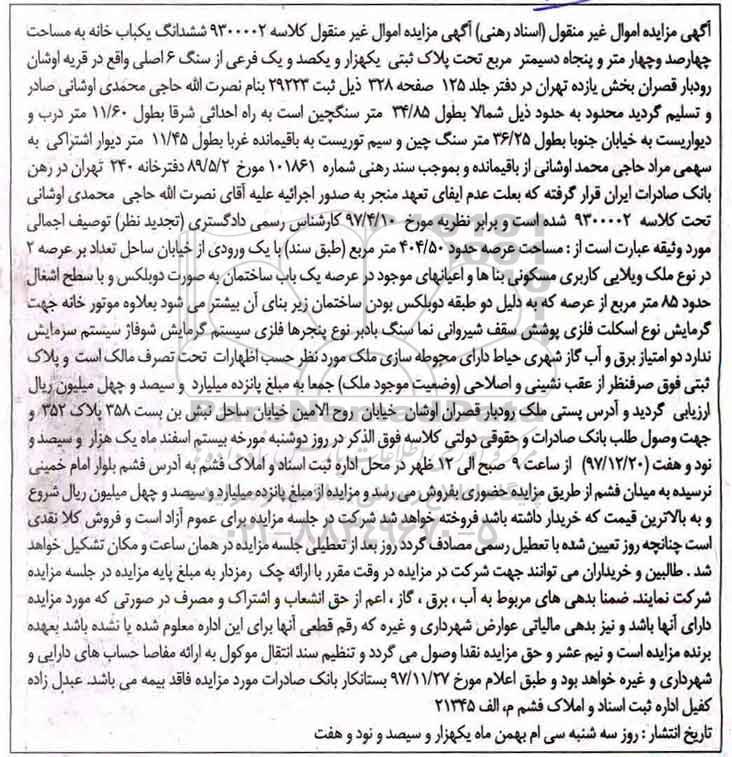 آگهی مزایده اموال غیر منقول (اسناد رهنی) آگهی مزایده اموال غیر منقول کلاسه ۹۳۰۰۰۰۲ ششدانگ یکباب خانه به مساحت
چهارصد وچهار متر و پنجاه دسیمتر مربع تحت پلاک ثبتی یکهزار و یکصد و یک فرعی از سنگ ۶ اصلی واقع در قریه اوشان
رودبار قصران بخش یازده تهران در دفتر جلد ۱۲۵ صفحه ۳۲۸ ذیل ثبت ۲۹۲۲۳ بنام نصرت الله حاجی محمدی اوشانی صادر
و تسلیم گردید محدود به حدود ذیل شمالا بطول ۳۴/۸۵ متر سنگچین است به راه احداثی شرقا بطول ۱۱/۶۰ متر درب و
دیواریست به خیابان جنوبا بطول ۳۶/۲۵ متر سنگ چین و سیم توریست به باقیمانده غربا بطول ۱۱/۴۵ متر دیوار اشتراکی به
سهمی مراد حاجی محمد اوشانی از باقیمانده و بموجب سند رهنی شماره ۱۰۱۸۶۱ مورخ ۸۹/۵/۲ دفترخانه ۲۴۰ تهران در رهن
بانک صادرات ایران قرار گرفته که بعلت عدم ایفای تعهد منجر به صدور اجرائیه علیه آقای نصرت الله حاجی محمدی اوشانی
تحت کلاسه ۹۳۰۰۰۰۲ شده است و برابر نظریه مورخ ۹۷/۴/۱۰ کارشناس رسمی دادگستری (تجدید نظر) توصیف اجمالی
مورد وثیقه عبارت است از : مساحت عرصه حدود ۴۰۴/۵۰ متر مربع (طبق سند) با یک ورودی از خیابان ساحل تعداد بر عرصه ۲
در نوع ملک ویلایی کاربری مسکونی بنا ها و اعیانهای موجود در عرصه یک باب ساختمان به صورت دوبلکس و با سطح اشغال
حدود ۸۵ متر مربع از عرصه که به دلیل دو طبقه دوبلکس بودن ساختمان زیر بنای آن بیشتر می شود بعلاوه موتور خانه جهت
گرمایش نوع اسکلت فلزی پوشش سقف شیروانی نما سنگ بادبر نوع پنجرها فلزی سیستم گرمایش شوفاژ سیستم سرمایش
ندارد دو امتیاز برق و آب گاز شهری حیاط دارای محوطه سازی ملک مورد نظر حسب اظهارات تحت تصرف مالک است و پلاک
ثبتی فوق صرفنظر از عقب نشینی و اصلاحی (وضعیت موجود ملک) جمعا به مبلغ پانزده میلیارد و سیصد و چهل میلیون ریال
ارزیابی گردید و آدرس پستی ملک رودبار قصران اوشان خیابان روح الامین خیابان ساحل نبش بن بست ۳۵۸ پلاک ۳۵۲ و
جهت وصول طلب بانک صادرات و حقوقی دولتی کلاسه فوق الذکر در روز دوشنبه مورخه بیستم اسفند ماه یک هزار و سیصد و
نود و هفت (۹۷/۱۲/۲۰) از ساعت ۹ صبح الی ۱۲ ظهر در محل اداره ثبت اسناد و املاک فشم به آدرس فشم بلوار امام خمینی
نرسیده به میدان فشم از طریق مزایده حضوری بفروش می رسد و مزایده از مبلغ پانزده میلیارد و سیصد و چهل میلیون ریال شروع
و به بالاترین قیمت که خریدار داشته باشد فروخته خواهد شد شرکت در جلسه مزایده برای عموم آزاد است و فروش کلا نقدی
است چنانچه روز تعیین شده با تعطیل رسمی مصادف گردد روز بعد از تعطیلی جلسه مزایده در همان ساعت و مکان تشکیل خواهد
شد . طالبین و خریداران می توانند جهت شرکت در مزایده در وقت مقرر با ارائه چک رمزدار به مبلغ پایه مزایده در جلسه مزایده
شرکت نمایند. ضمنا بدهی های مربوط به آب ، برق ، گاز ، اعم از حق انشعاب و اشتراک و مصرف در صورتی که مورد مزایده
دارای آنها باشد و نیز بدهی مالیاتی عوارض شهرداری و غیره که رقم قطعی آنها برای این اداره معلوم شده یا نشده باشد بعهده
برنده مزایده است و نیم عشر و حق مزایده نقدا وصول می گردد و تنظیم سند انتقال موکول به ارائه مفاصا حساب های دارایی و
شهرداری و غیره خواهد بود و طبق اعلام مورخ ۹۷/۱۱/۲۷ بستانکار بانک صادرات مورد مزایده فاقد بیمه می باشد. عبدل زاده
کفیل اداره ثبت اسناد و املاک فشم م، الف ۲۱۳۴۵
تاریخ انتشار : روز سه شنبه سی ام بهمن ماه یکهزار و سیصد و نود و هفت
۰۲۱-۸۸۳۴۹۶۷۰-۵